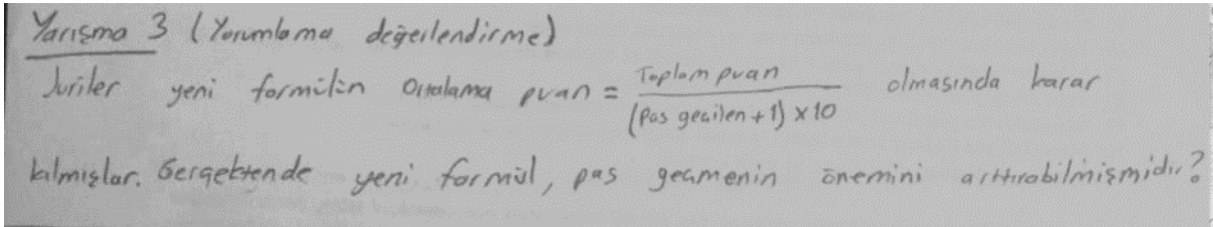 Yarışma 3 (Yorumlama değerlendirme)
Juriler yeni formülün Ortalama puan = Toplam puan / (Pas geçilen + 1) x 10 olmasında karar
kılmışlar. Gerçektende yeni formül, pas geçmenin önemini arttırabilmişmidir?